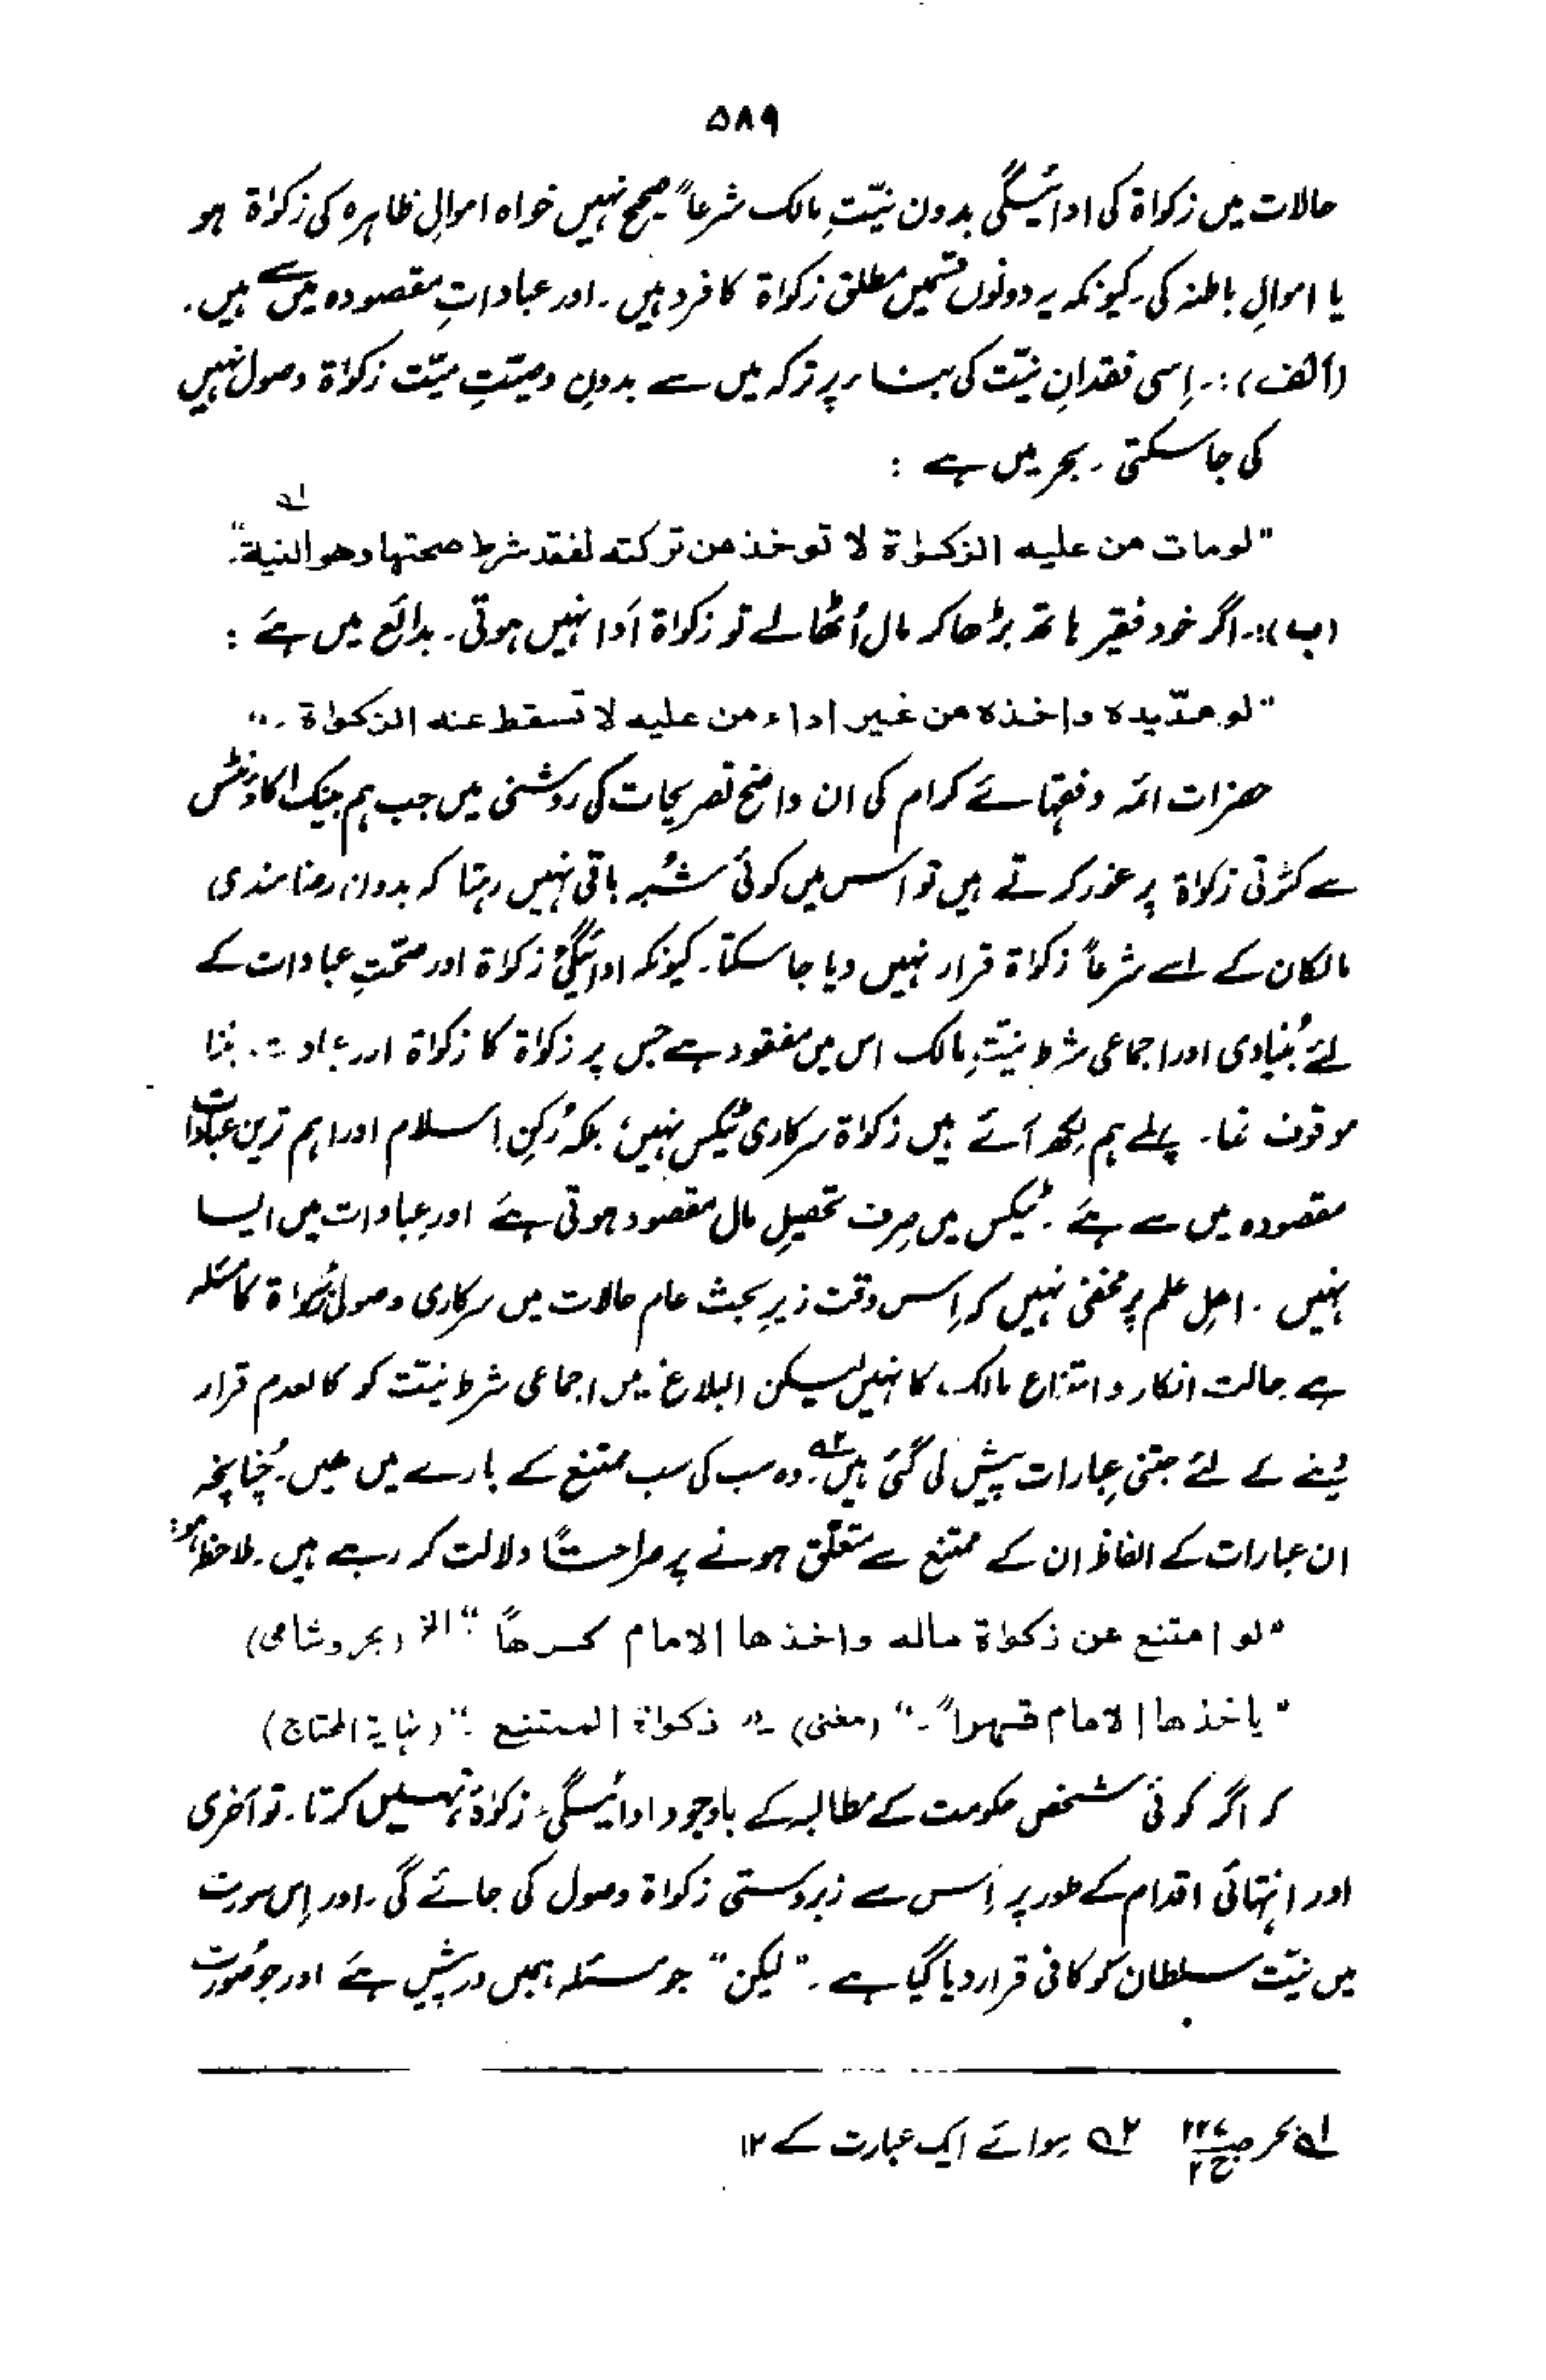 ۵۸۹
حالات میں زکواۃ کی ادائیگی بدون نیّتِ مالک شرعاً صحیح نہیں خواہ اموالِ ظاہرہ کی زکواۃ ہو
یا اموالِ باطنہ کی۔ کیونکہ یہ دونوں قسمیں مطلق زکواۃ کا فرد ہیں۔ اور عباداتِ مقصودہ میں سے ہیں۔
(الف):۔ اِسی فقدانِ نیّت کی بناء پر ترکہ میں سے بدوں وصیّتِ میّت زکواۃ وصول نہیں
کی جا سکتی۔ بحر میں ہے :
"لو مات من علیہ الزکوٰۃ لا توخذ من ترکتہ لفقد شرط صحتہا وھو النیة۔" ۱؎
(ب):۔ اگر خود فقیر ہاتھ بڑھا کر مال اُٹھالے تو زکواۃ اَدا نہیں ہوتی۔ بدائع میں ہے :
"لو مدّ یدہ واخذہ من غیر اداء من علیہ لا تسقط عنہ الزکوٰۃ۔"
حضرات ائمہ و فقہائے کرام کی ان واضح تصریحات کی روشنی میں جب ہم بینک اکاؤنٹس
سے کٹوتی زکواۃ پر غور کرتے ہیں تو اس میں کوئی شُبہ باقی نہیں رہتا کہ بدون رضامندی
مالکان کے اسے شرعاً زکواۃ قرار نہیں دیا جا سکتا۔ کیونکہ ادائیگیٔ زکواۃ اور صحّتِ عبادات کے
لئے بُنیادی اور اجماعی شرط نیّتِ مالک اس میں مفقود ہے جس پر زکواۃ کا زکواۃ اور عبادت بننا
موقوف تھا۔ پہلے ہم لکھ آئے ہیں زکواۃ سرکاری ٹیکس نہیں، بلکہ رُکنِ اسلام اور اہم ترین عبادات
مقصودہ میں سے ہے۔ ٹیکس میں صرف تحصیلِ مال مقصود ہوتی ہے اور عبادات میں ایسا
نہیں۔ اہلِ علم پر مخفی نہیں کہ اِس وقت زیرِ بحث عام حالات میں سرکاری وصولیٔ زکواۃ کا مسئلہ
ہے حالت انکار و امتناع مالک کا نہیں لیکن البلاغ میں اجماعی شرط نیّت کو کالعدم قرار
دینے کے لئے جتنی عبارات پیش کی گئی ہیں ۲؎۔ وہ سب کی سب ممتنع کے بارے میں ھیں۔ چُنانچہ
ان عبارات کے الفاظ ان کے ممتنع سے متعلّق ہونے پر صراحتاً دلالت کر رہے ہیں۔ ملاحظہ ہو:
"لو امتنع عن زکوٰۃ مالہ واخذھا الامام کرھاً" الخ (بحر و شامی)
"یاخذھا الامام قہراً۔" (مغنی) "۔ زکواۃ الممتنع۔" (نہایۃ المحتاج)
کہ اگر کوئی شخص حکومت کے مطالبہ کے باوجود ادائیگیٔ زکوٰۃ نہیں کرتا۔ تو آخری
اور انتہائی اقدام کے طور پر اِس سے زبردستی زکواۃ وصول کی جائے گی۔ اور اِس صورت
میں نیّت سلطان کو کافی قرار دیا گیا ہے۔ "لیکن" جو مسئلہ ہمیں درپیش ہے اور جو صُورت
۱؎ بحر ص۲۲۷ ج۲ ۲؎ سوائے ایک عبارت کے ۱۲